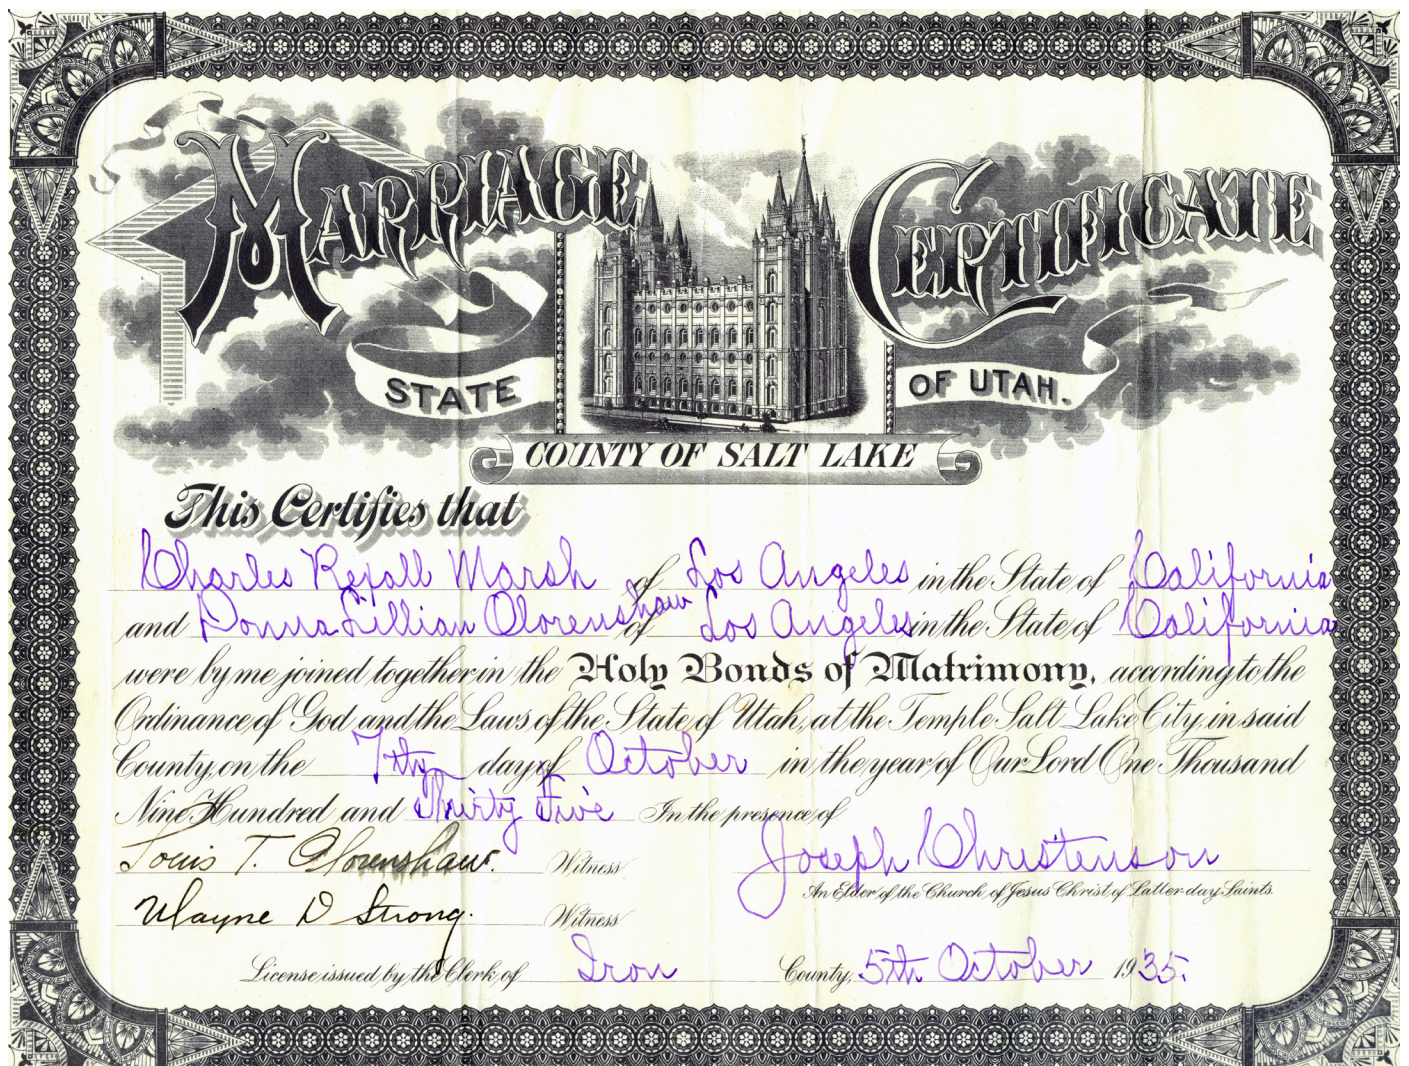 MARRIAGE CERTIFICATE
STATE OF UTAH.
COUNTY OF SALT LAKE
This Certifies that
Charles Rexall Marsh of Los Angeles in the State of California
and Donna Lillian Clorenshaw of Los Angeles in the State of California
were by me joined together in the Holy Bonds of Matrimony, according to the
Ordinance of God and the Laws of the State of Utah, at the Temple Salt Lake City, in said
County, on the 7th day of October in the year of Our Lord One Thousand
Nine Hundred and Thirty Five In the presence of
Louis T. Clorenshaw. Witness Joseph Christenson
An Elder of the Church of Jesus Christ of Latter-day Saints.
Wayne D Strong. Witness
License issued by the Clerk of Iron County, 5th October 1935.